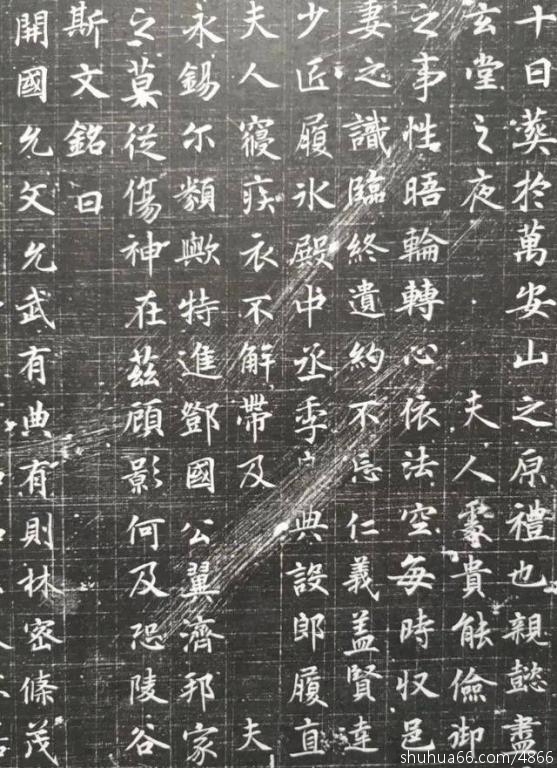 十日葬於萬安山之原禮也親懿盡
玄堂之夜 夫人處貴能儉御
之事性晤輪轉心依法空每時収邑
妻之識臨終遺約不忘仁義蓋賢達
少匠履冰殿中丞季 典設郎履直
夫人寢疾衣不解帶及 夫
永錫尔類歟特進鄧國公翼濟邦家
之莫從傷神在茲顧影何及恐陵谷
斯文銘曰
開國允文允武有典有則林密條茂
shuhua66.com/4866